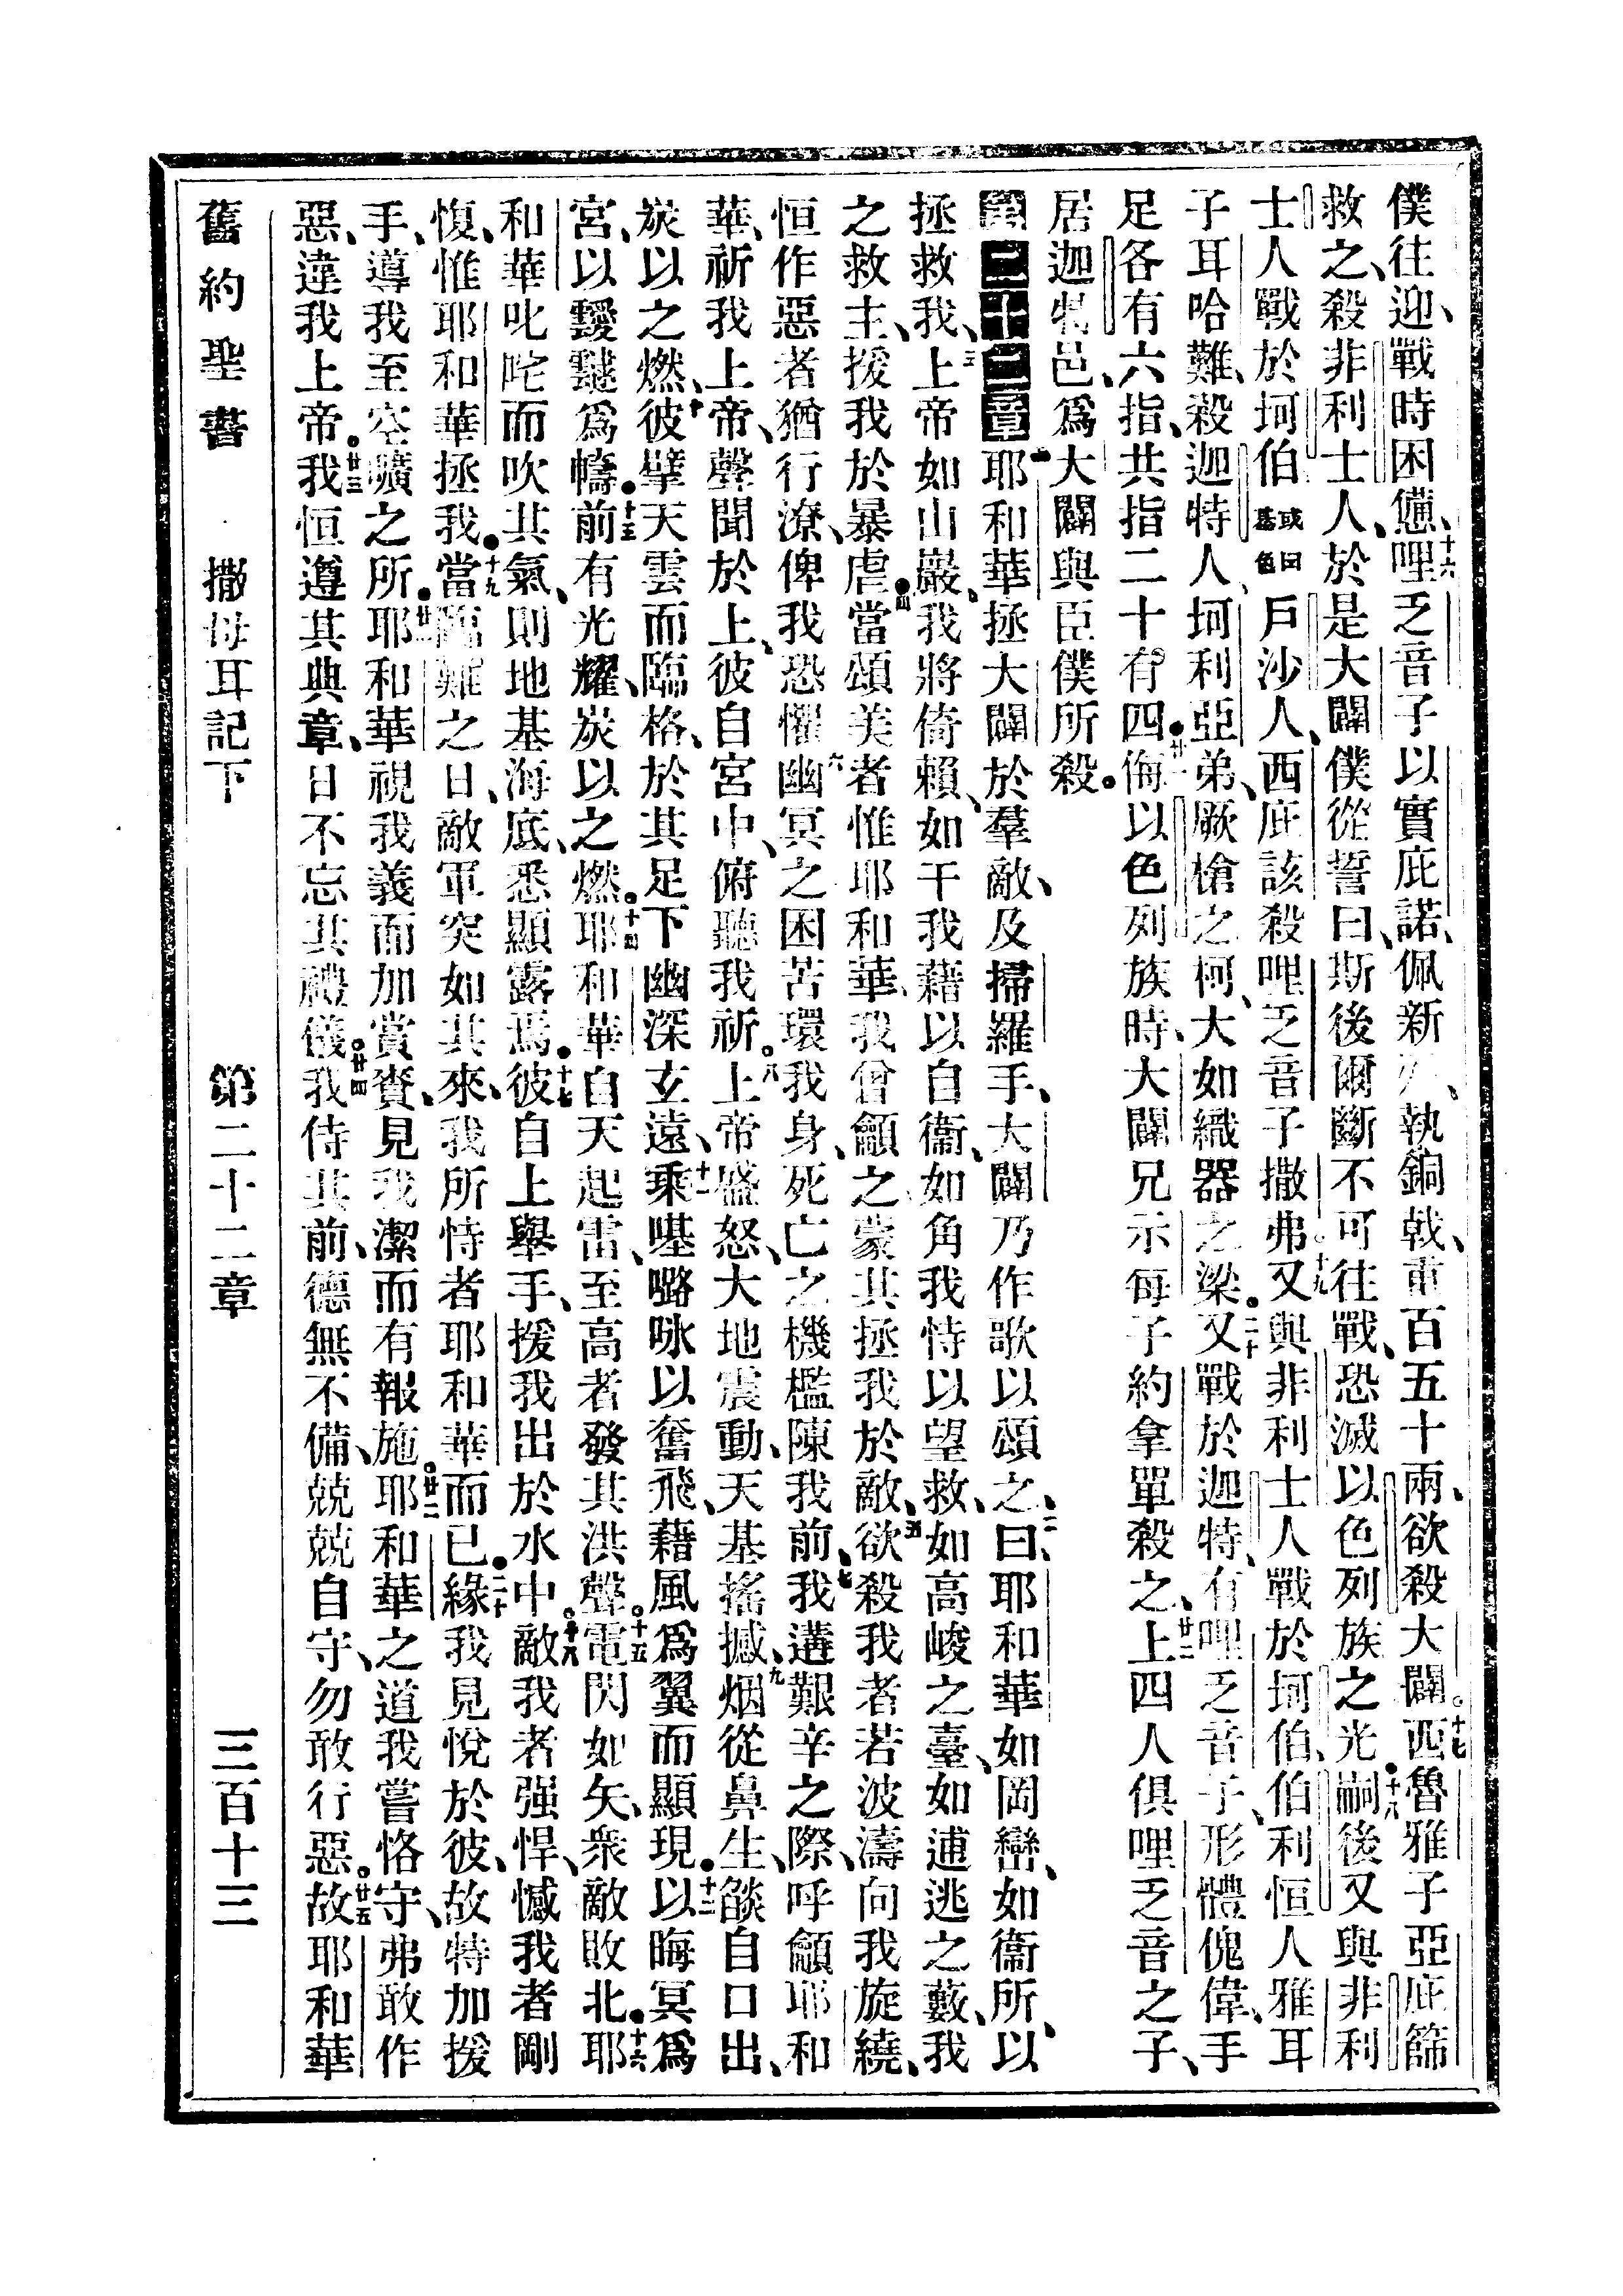 僕往迎、戰時困憊、十六哩乏音子以實庇諾、佩新 、執銅戟、重百五十兩、欲殺大闢。十七西魯雅子亞庇篩
救之、殺非利士人、於是大闢僕從誓曰、斯後爾斷不可往戰、恐滅以色列族之光。十八嗣後又與非利
士人戰於坷伯或曰基色、戶沙人、西庇該殺哩乏音子撒弗。十九又與非利士人戰於坷伯、伯利恒人雅耳
子耳哈難、殺迦特人、坷利亞弟、厥槍之柯、大如織器之梁。二十又戰於迦特、有哩乏音子、形體傀偉、手
足各有六指、共指二十有四。廿一侮以色列族時、大闢兄示每子約拿單殺之、廿二上四人俱哩乏音之子、
居迦特邑、爲大闢與臣僕所殺。
第二十二章一耶和華拯大闢於羣敵、及掃羅手、大闢乃作歌以頌之、二曰、耶和華如岡巒、如衞所、以
拯救我、三上帝如山巖、我將倚賴、如干我藉以自衞、如角我恃以望救、如高峻之臺、如逋逃之藪、我
之救主、援我於暴虐。四當頌美者惟耶和華、我曾籲之、蒙其拯我於敵、五欲殺我者若波濤向我旋繞、
恒作惡者猶行潦、俾我恐懼、六幽冥之困苦環我身、死亡之機檻陳我前、七我遘艱辛之際、呼籲耶和
華、祈我上帝、聲聞於上、彼自宮中、俯聽我祈。八上帝盛怒、大地震動、天基搖撼、九烟從鼻生、燄自口出、
炭以之燃、十彼擘天雲而臨格、於其足下幽深玄遠、十一乘𠼻㗉咏以奮飛、藉風爲翼而顯現。十二以晦冥爲
宮、以靉靆爲幬。十三前有光耀、炭以之燃。十四耶和華自天起雷、至高者發其洪聲。十五電閃如矢、衆敵敗北。十六耶
和華叱咤而吹其氣、則地基海底、悉顯露焉。十七彼自上舉手、援我出於水中。十八敵我者强悍、憾我者剛
愎、惟耶和華拯我。十九當臨難之日、敵軍突如其來、我所恃者耶和華而已。二十緣我見悅於彼、故特加援
手、導我至空曠之所。廿一耶和華視我義而加賞賚、見我潔而有報施。廿二耶和華之道我嘗恪守、弗敢作
惡、違我上帝。廿三我恒遵其典章、日不忘其禮儀。廿四我侍其前、德無不備、兢兢自守、勿敢行惡。廿五故耶和華
舊約聖書 撒母耳記下 第二十二章 三百十三